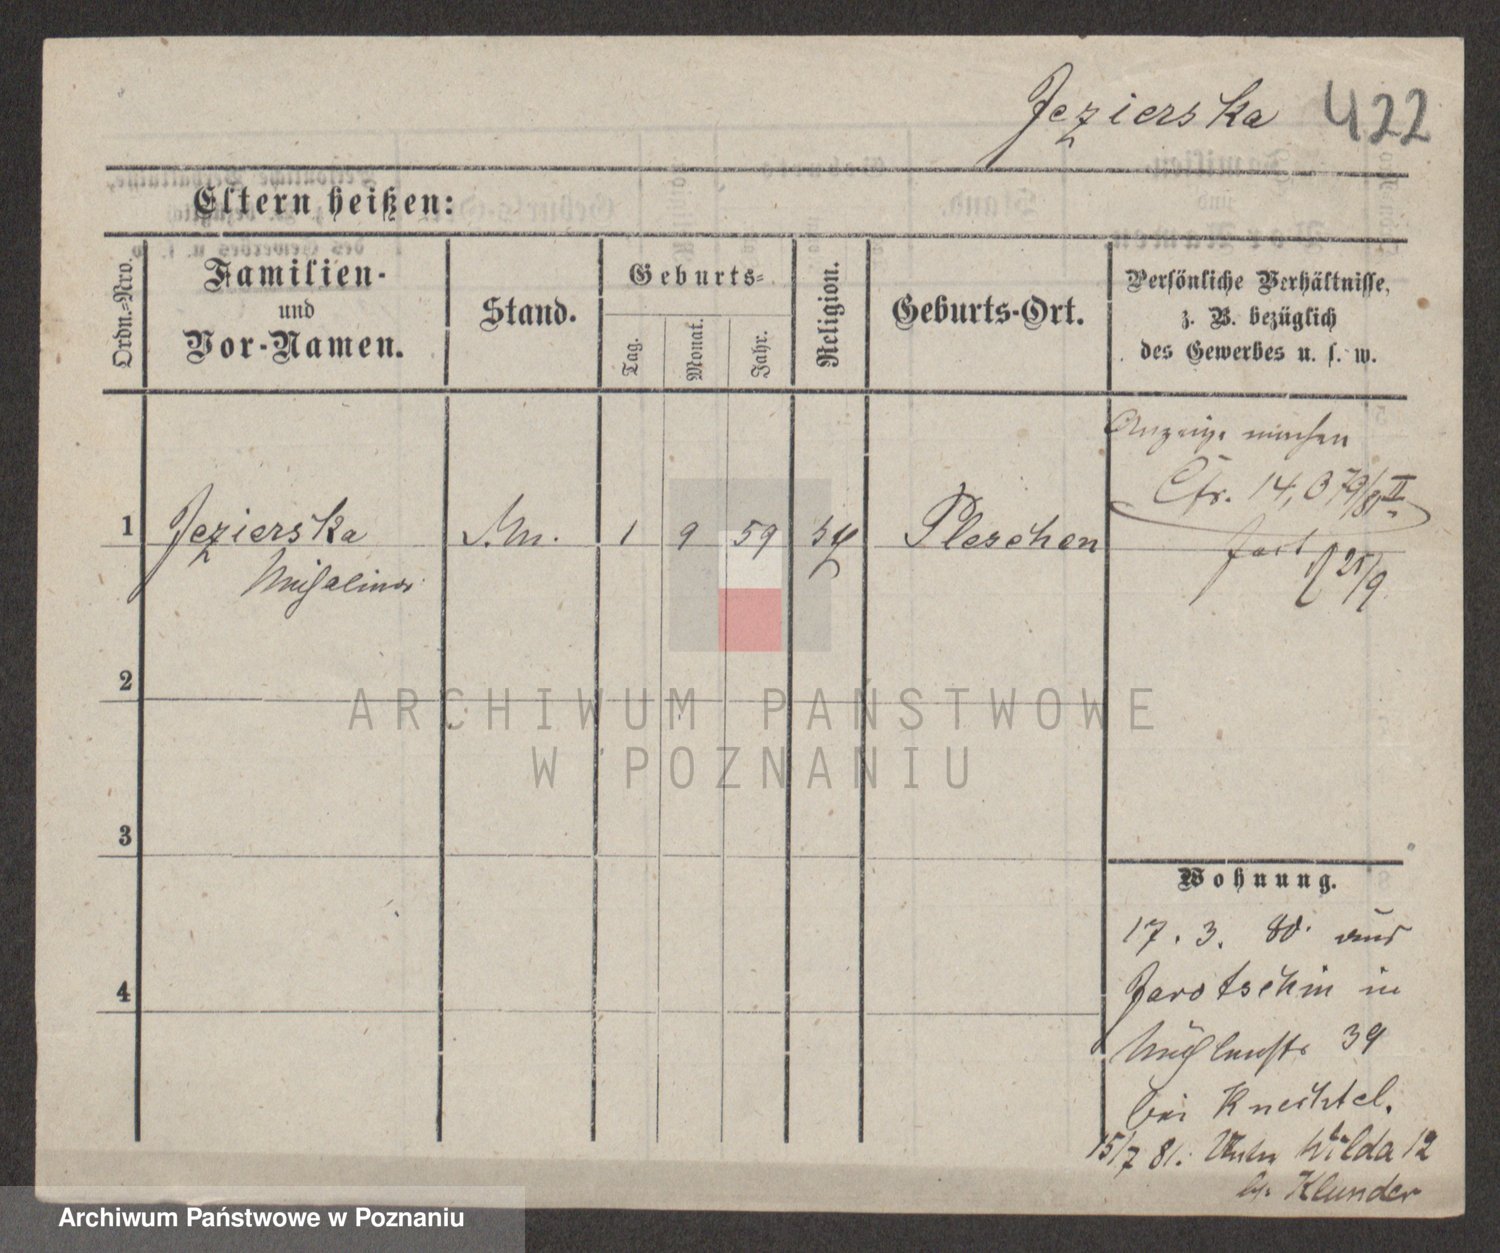 Jezierska 422
Eltern heißen:
Ordn.-Nro.
Familien-
und
Vor-Namen.
Stand.
Geburts-
Tag.
Monat.
Jahr.
Religion.
Geburts-Ort.
Persönliche Verhältnisse,
z. B. bezüglich
des Gewerbes u. s. w.
Anzeige machen
Cfr. 14,079/81 II
fort 25/9
1 Jezierska 1 9 59 Pleschen
Michalina
2
3
4
Wohnung.
17. 3. 80. aus
Jarotschin in
Mühlenstr 39
bei Knechtel.
15/7 81. Unter Wilda 12
bei Klunder
ARCHIWUM PAŃSTWOWE
W POZNANIU
Archiwum Państwowe w Poznaniu